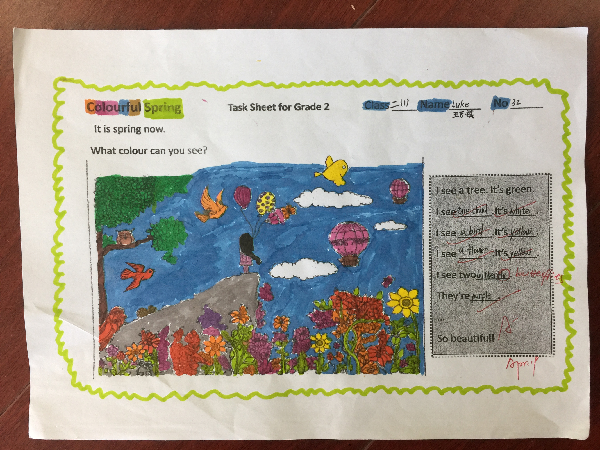 Colourful Spring
Task Sheet for Grade 2
Class 二(1) Name Luke No 32
It is spring now.
What colour can you see?
I see a tree. It's green.
I see one cloud. It's white.
I see a bird. It's yellow.
I see a flower. It's yellow.
I see two
They're purple.
So beautiful!